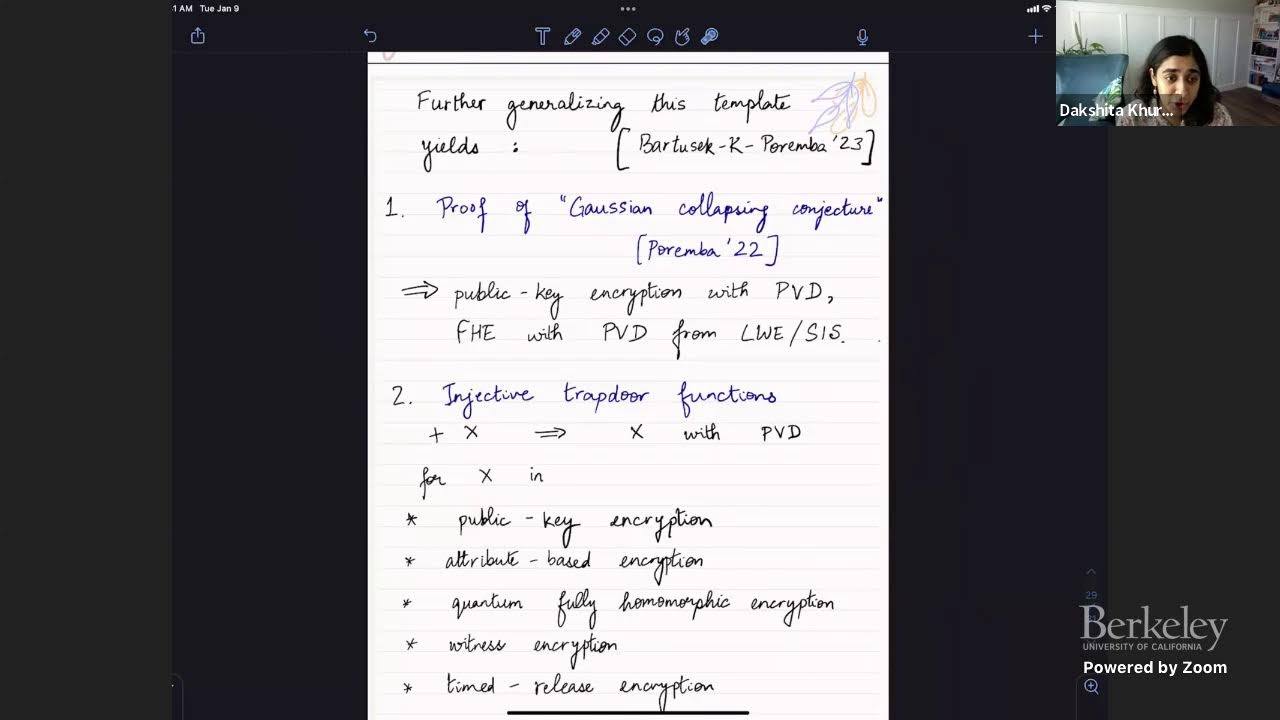 1 AM Tue Jan 9
Dakshita Khur...
Further generalizing this template
yields : [Bartusek-K-Poremba '23]
1. Proof of "Gaussian collapsing conjecture"
[Poremba '22]
⇒ public-key encryption with PVD,
FHE with PVD from LWE/SIS.
2. Injective trapdoor functions
+ X ⇒ X with PVD
for X in
* public-key encryption
* attribute-based encryption
* quantum fully homomorphic encryption
* witness encryption
* timed-release encryption
29
Berkeley
UNIVERSITY OF CALIFORNIA
Powered by Zoom